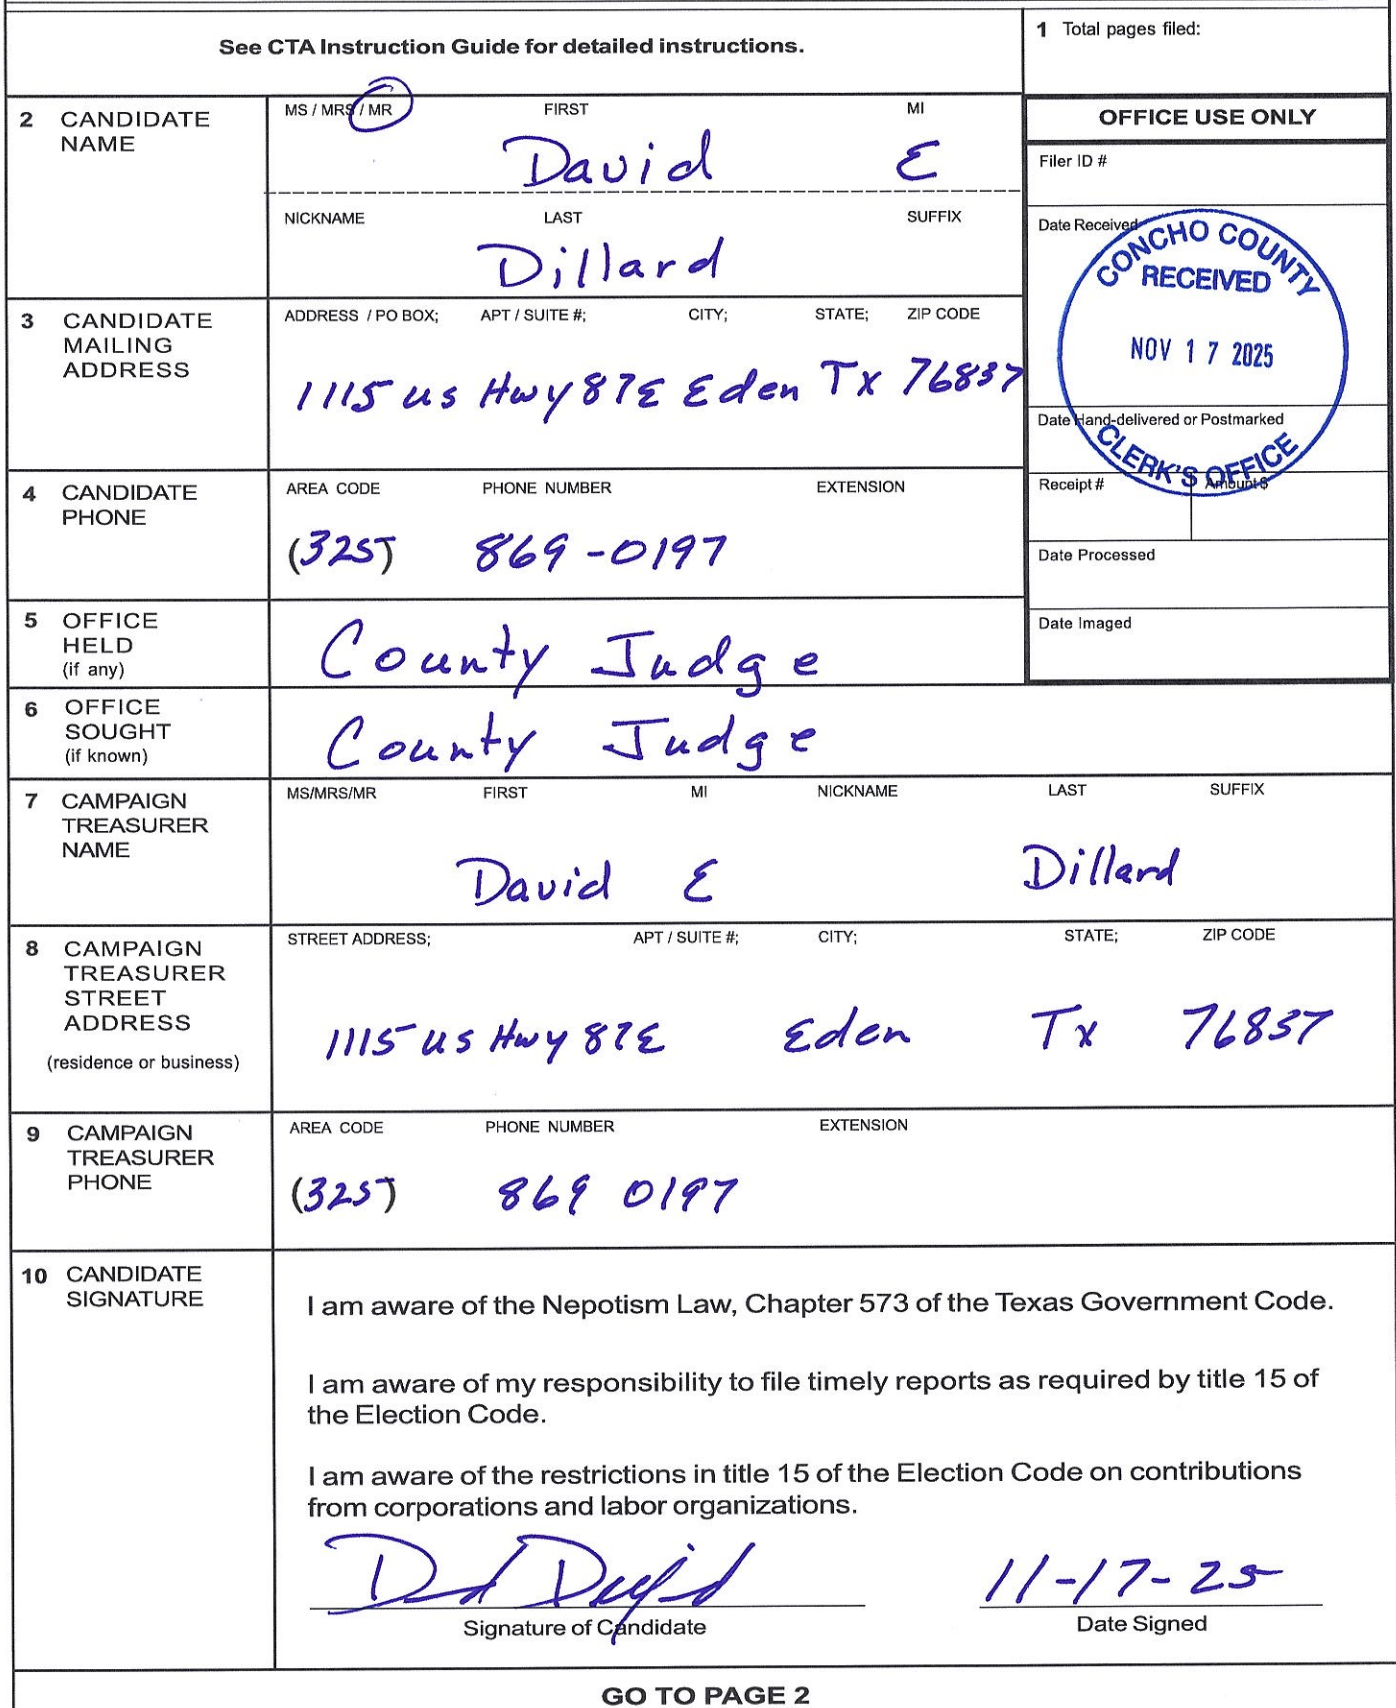 See CTA Instruction Guide for detailed instructions.
1 Total pages filed:
2 CANDIDATE NAME
MS / MRS / MR FIRST MI
David E
NICKNAME LAST SUFFIX
Dillard
OFFICE USE ONLY
Filer ID #
Date Received
CONCHO COUNTY
RECEIVED
NOV 17 2025
CLERK'S OFFICE
Date Hand-delivered or Postmarked
Receipt # Amount $
Date Processed
Date Imaged
3 CANDIDATE MAILING ADDRESS
ADDRESS / PO BOX; APT / SUITE #; CITY; STATE; ZIP CODE
1115 us Hwy 87E Eden Tx 76837
4 CANDIDATE PHONE
AREA CODE PHONE NUMBER EXTENSION
(325) 869-0197
5 OFFICE HELD (if any)
County Judge
6 OFFICE SOUGHT (if known)
County Judge
7 CAMPAIGN TREASURER NAME
MS/MRS/MR FIRST MI NICKNAME LAST SUFFIX
David E Dillard
8 CAMPAIGN TREASURER STREET ADDRESS (residence or business)
STREET ADDRESS; APT / SUITE #; CITY; STATE; ZIP CODE
1115 us Hwy 87E Eden Tx 76837
9 CAMPAIGN TREASURER PHONE
AREA CODE PHONE NUMBER EXTENSION
(325) 869 0197
10 CANDIDATE SIGNATURE
I am aware of the Nepotism Law, Chapter 573 of the Texas Government Code.
I am aware of my responsibility to file timely reports as required by title 15 of
the Election Code.
I am aware of the restrictions in title 15 of the Election Code on contributions
from corporations and labor organizations.
11-17-25
Signature of Candidate Date Signed
GO TO PAGE 2